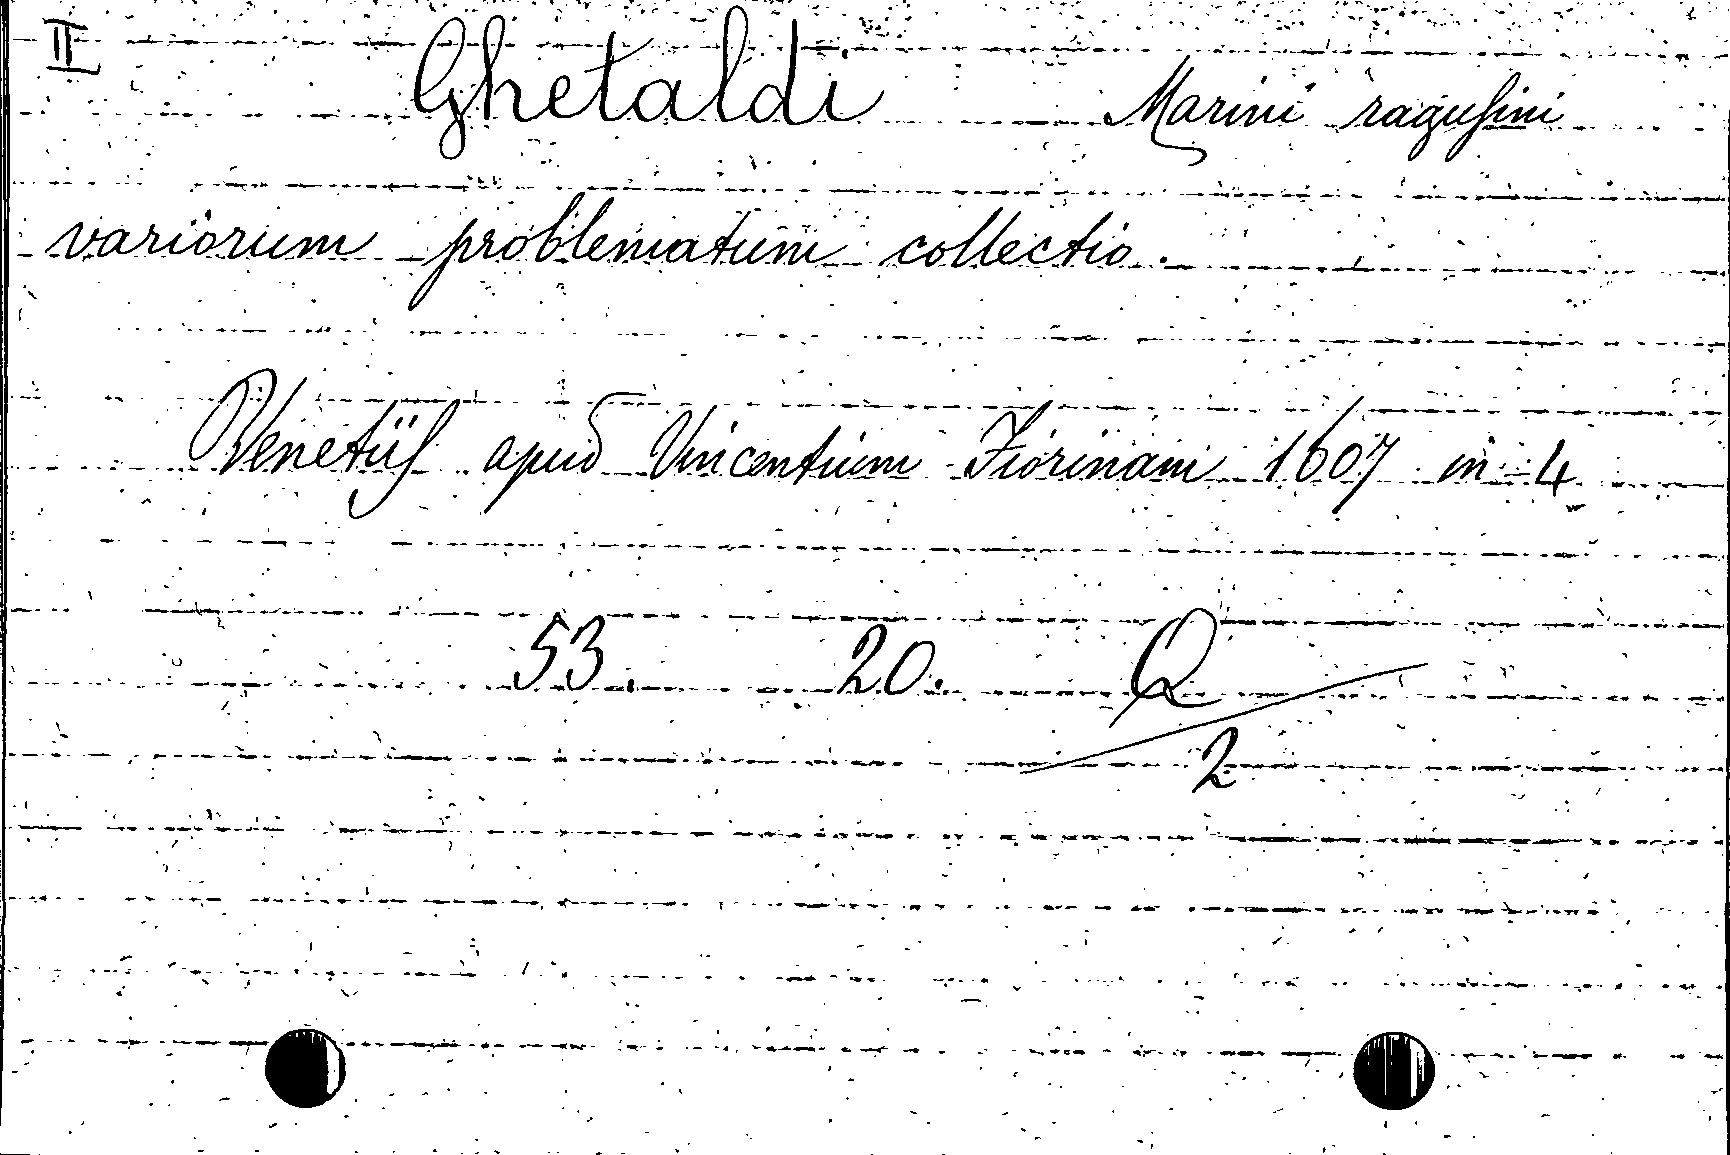 II Ghetaldi Marini ragusini
variorum problematum collectio.
Venetijs apud Vincentium Fiorinam 1607 in 4
53. 20. Q
2